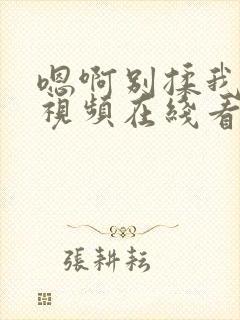 嗯啊别揉我
视频在线看
張耕耘